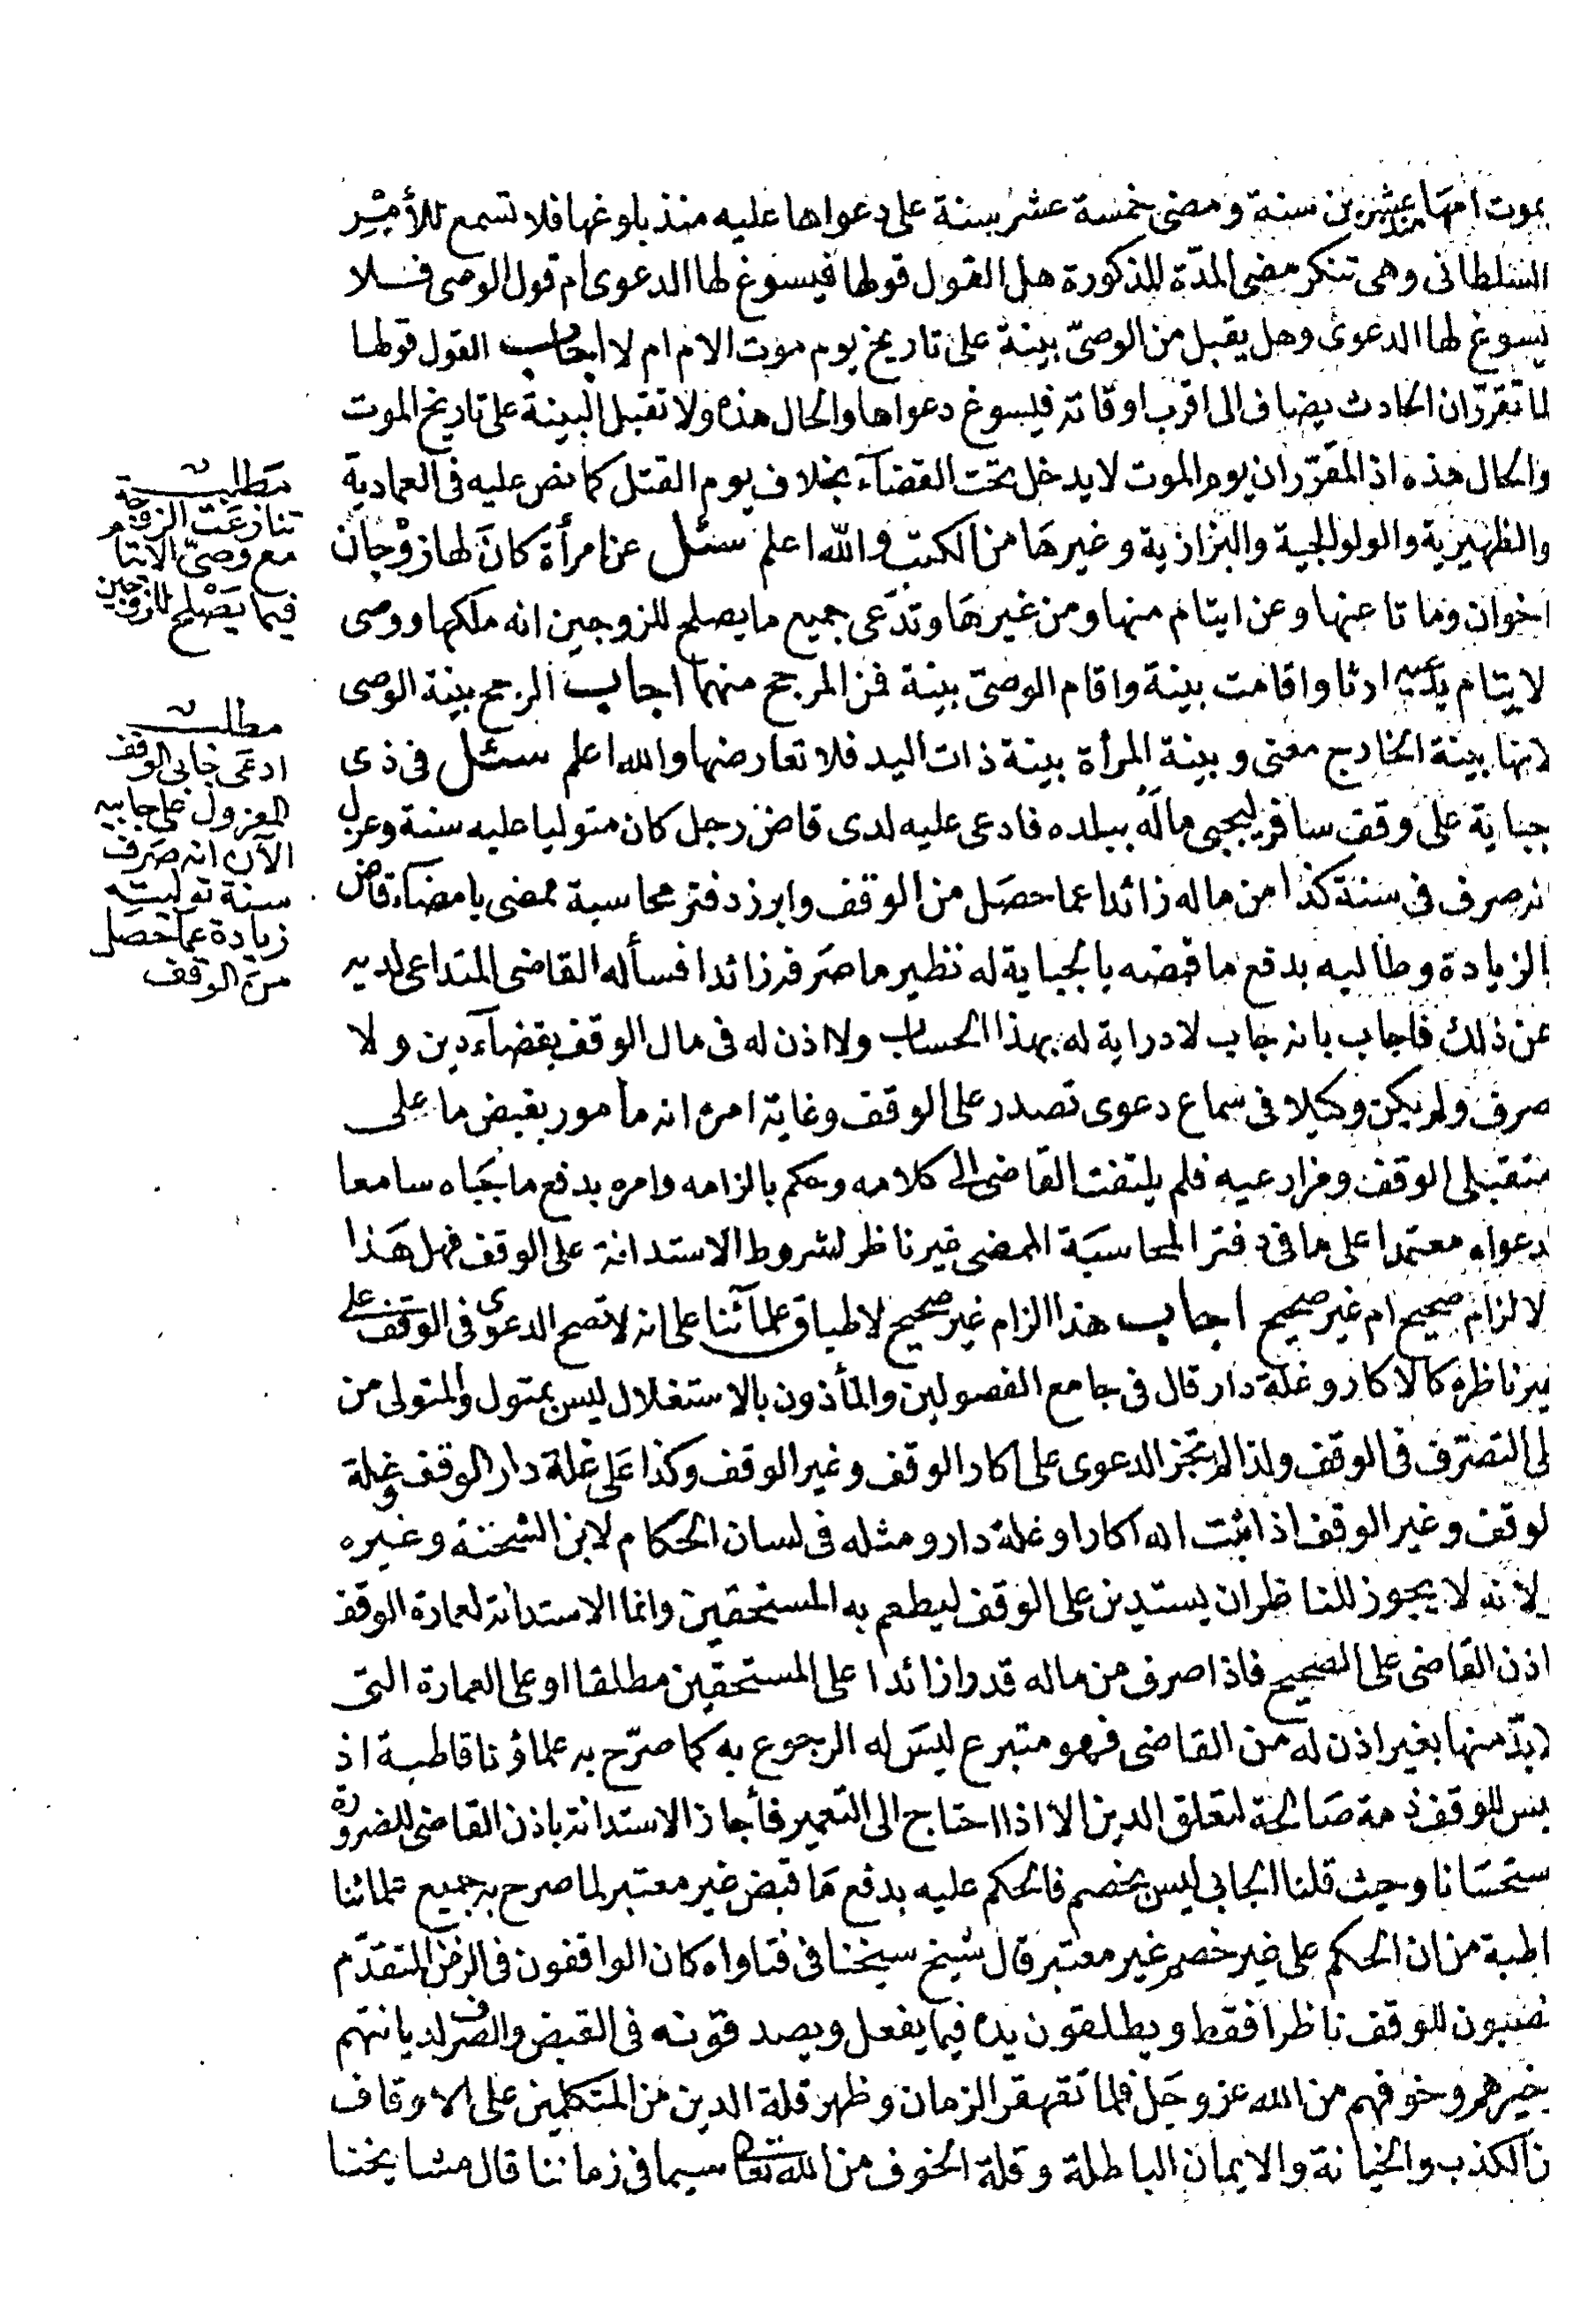 بموت امها منذ عشرين سنة ومضى خمسة عشر سنة على دعواها عليه منذ بلوغها فلا تسمع للأمر
السلطانى وهى تنكر مضى المدّة المذكورة هل القول قولها فيسوغ لها الدعوى ام قول الوصى فلا
يسوغ لها الدعوى وهل يقبل من الوصىّ بينة على تاريخ يوم موت الام ام لا اجاب القول قولها
لما تقرّر ان الحادث يضاف الى اقرب اوقاته فيسوغ دعواها والحال هذه ولا تقبل البينة على تاريخ الموت
والحال هذه اذ المقرّر ان يوم الموت لا يدخل تحت القضآء بخلاف يوم القتل كما نص عليه فى العمادية
والظهيرية والولوالجية والبزازية وغيرها من الكتب والله اعلم سئل عن امرأة كان لها زوجان
اخوان وماتا عنها وعن ايتام منها ومن غيرها وتدّعى جميع ما يصلح للزوجين انه ملكها ووصى
لايتام يدّعيه ارثا واقامت بينة واقام الوصىّ بينة فمن المرجح منهما اجاب المرجح بينة الوصى
لانها بينة الخارج معنى وبينة المرأة بينة ذات اليد فلا تعارضها والله اعلم سئل فى ذى
جباية على وقف سافر ليجبى ماله ببلده فادعى عليه لدى قاض رجل كان متوليا عليه سنة وعزل
انه صرف فى سنة كذا من ماله زائدا عما حصل من الوقف وابرز دفتر محاسبة ممضى بامضاء قاض
بالزيادة وطالبه بدفع ما قبضه بالجباية له نظير ما صرفه زائدا فسأله القاضى المتداعى لديه
عن ذلك فاجاب بانه جاب لا دراية له بهذا الحساب ولا اذن له فى مال الوقف بقضآء دين ولا
صرف ولم يكن وكيلا فى سماع دعوى تصدر على الوقف وغاية امره انه مأمور بقبض ما على
متقبلى الوقف ومزارعيه فلم يلتفت القاضى الى كلامه وحكم بالزامه وامره بدفع ما جباه سامعا
لدعواه معتمدا على ما فى دفتر المحاسبة الممضى غير ناظر لشروط الاستدانة على الوقف فهل هذا
لالزام صحيح ام غير صحيح اجاب هذا الزام غير صحيح لاطباق علمآئنا على انه لا تصح الدعوى فى الوقف على
غير ناظره كالاكار وغلة دار قال فى جامع الفصولين والمأذون بالاستغلال ليس بمتول والمتولى من
يلى التصرّف فى الوقف ولذا لم تجز الدعوى على اكار الوقف وغير الوقف وكذا على غلة دار الوقف وغلة
لوقف وغير الوقف اذا ثبت انه اكار او غلة دار ومثله فى لسان الحكام لابن الشحنة وغيره
ولانه لا يجوز للناظر ان يستدين على الوقف ليطعم به المستحقين وانما الاستدانة لعمارة الوقف
اذن القاضى على الصحيح فاذا صرف من ماله قدرا زائدا على المستحقين مطلقا او على العمارة التى
لا بدّ منها بغير اذن له من القاضى فهو متبرع ليس له الرجوع به كما صرّح به علماؤنا قاطبة اذ
ليس للوقف ذمة صالحة لتعلق الدين الا اذا احتاج الى التعمير فأجاز الاستدانة باذن القاضى للضرورة
ستحسانا وحيث قلنا الجابى ليس بخصم فالحكم عليه بدفع ما قبض غير معتبر لما صرح به جميع علمائنا
اطبة من ان الحكم على غير خصم غير معتبر قال شيخ شيخنا فى فتاواه كان الواقفون فى الزمن المتقدّم
نصبون للوقف ناظرا فقط ويطلقون يده فيما يفعل ويصدقونه فى القبض والصرف لديانتهم
خيرهم وخوفهم من الله عز وجل فلما تقهقر الزمان وظهر قلة الدين من المتكلمين على الاوقاف
من الكذب والخيانة والايمان الباطلة وقلة الخوف من الله تعالى سيما فى زماننا قال مشايخنا
مطلب
تنازعت الزوجة
مع وصىّ الايتام
فيما يصلح للزوجين
مطلب
ادعى جابى الوقف
المعزول على جابيه
الآن انه صرف
سنة توليته
زيادة عما حصل
من الوقف